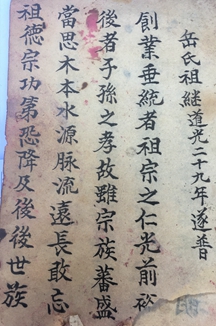 岳氏祖継道光二十九年遂普
創業垂統者祖宗之仁光前裕
後者子孫之孝故雖宗族蕃盛
當思木本水源脉流遠長敢忘
祖德宗功第恐降及後後世族